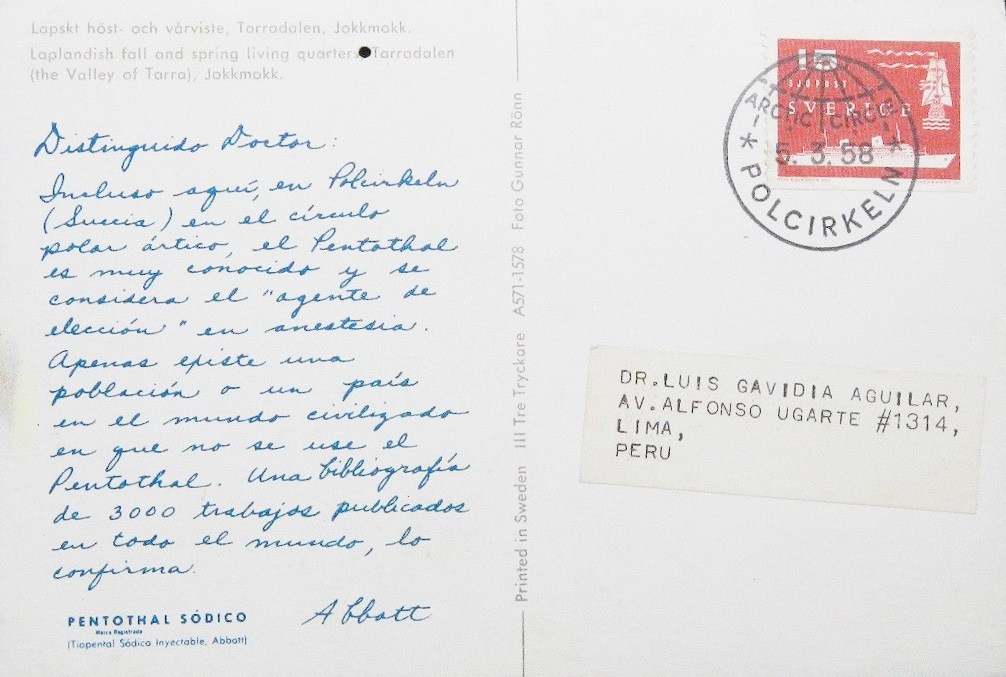 Lapskt höst- och vårviste, Tarradalen, Jokkmokk.
Laplandish fall and spring living quarters Tarradalen
(the Valley of Tarra), Jokkmokk.
Distinguido Doctor:
Incluso aquí, en Polcirkeln
(Suecia) en el círculo
polar ártico, el Pentothal
es muy conocido y se
considera el "agente de
elección" en anestesia.
Apenas existe una
población o un país
en el mundo civilizado
en que no se use el
Pentothal. Una bibliografía
de 3000 trabajos publicados
en todo el mundo, lo
confirma.
Abbott
PENTOTHAL SÓDICO
Marca Registrada
(Tiopental Sódico Inyectable, Abbott)
Printed in Sweden III Tre Tryckare A571-1578 Foto Gunnar Rönn
15
SJÖPOST
SVERIGE
ARCTIC CIRCLE
5. 3. 58
* POLCIRKELN *
DR.LUIS GAVIDIA AGUILAR,
AV.ALFONSO UGARTE #1314,
LIMA,
PERU